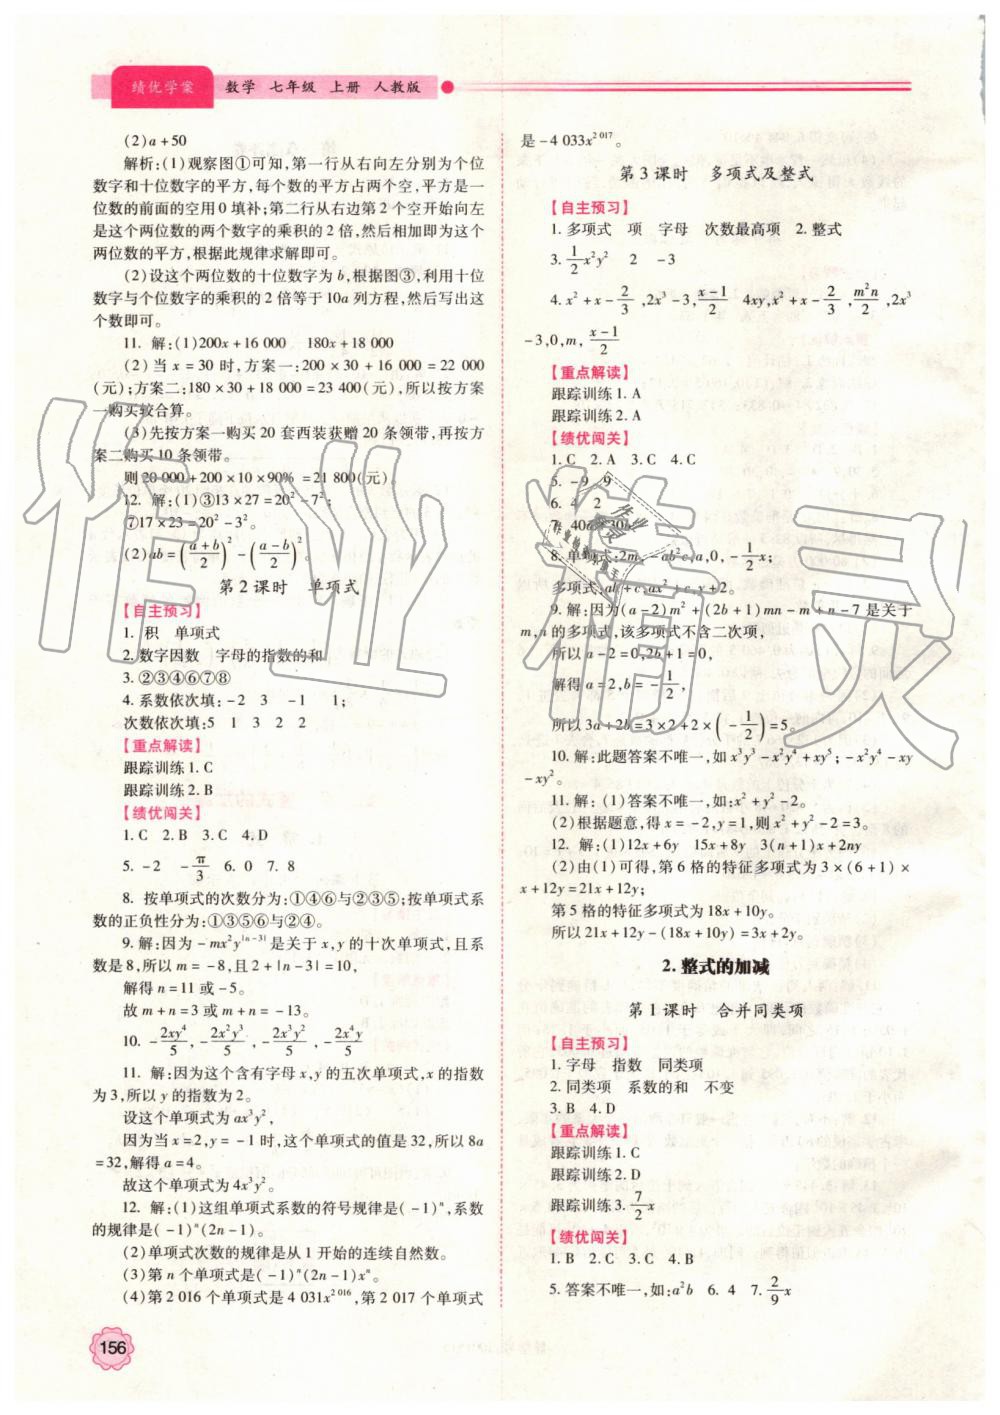 绩优学案 数学 七年级 上册 人教版
(2)a+50
解析:(1)观察图①可知,第一行从右向左分别为个位
数字和十位数字的平方,每个数的平方占两个空,平方是一
位数的前面的空用0填补;第二行从右边第2个空开始向左
是这个两位数的两个数字的乘积的2倍,然后相加即为这个
两位数的平方,根据此规律求解即可。
(2)设这个两位数的十位数字为b,根据图③,利用十位
数字与个位数字的乘积的2倍等于10a列方程,然后写出这
个数即可。
11. 解:(1)200x+16 000 180x+18 000
(2)当x=30时,方案一:200×30+16 000=22 000
(元);方案二:180×30+18 000=23 400(元),所以按方案
一购买较合算。
(3)先按方案一购买20套西装获赠20条领带,再按方
案二购买10条领带。
则20 000+200×10×90%=21 800(元)。
12. 解:(1)③13×27=20²-7²;
⑦17×23=20²-3²。
(2)ab=((a+b)/2)²-((a-b)/2)²
第2课时 单项式
【自主预习】
1. 积 单项式
2. 数字因数 字母的指数的和
3. ②③④⑥⑦⑧
4. 系数依次填:-2 3 -1 1;
次数依次填:5 1 3 2 2
【重点解读】
跟踪训练1. C
跟踪训练2. B
【绩优闯关】
1. C 2. B 3. C 4. D
5. -2 -π/3 6. 0 7. 8
8. 按单项式的次数分为:①④⑥与②③⑤;按单项式系
数的正负性分为:①③⑤⑥与②④。
9. 解:因为-mx²y^|n-3|是关于x,y的十次单项式,且系
数是8,所以m=-8,且2+|n-3|=10,
解得n=11或-5。
故m+n=3或m+n=-13。
10. -2xy⁴/5,-2x²y³/5,-2x³y²/5,-2x⁴y/5
11. 解:因为这个含有字母x,y的五次单项式,x的指数
为3,所以y的指数为2。
设这个单项式为ax³y²,
因为当x=2,y=-1时,这个单项式的值是32,所以8a
=32,解得a=4。
故这个单项式为4x³y²。
12. 解:(1)这组单项式系数的符号规律是(-1)ⁿ,系数
的规律是(-1)ⁿ(2n-1)。
(2)单项式次数的规律是从1开始的连续自然数。
(3)第n个单项式是(-1)ⁿ(2n-1)xⁿ。
(4)第2 016个单项式是4 031x²⁰¹⁶,第2 017个单项式
156
是-4 033x²⁰¹⁷。
第3课时 多项式及整式
【自主预习】
1. 多项式 项 字母 次数最高项 2. 整式
3. 1/2x²y² 2 -3
4. x²+x-2/3,2x³-3,(x-1)/2 4xy,x²+x-2/3,m²n/2,2x³
-3,0,m,(x-1)/2
【重点解读】
跟踪训练1. A
跟踪训练2. A
【绩优闯关】
1. C 2. A 3. C 4. C
5. -9 9
6. 4 2
7. 40a+30b
8. 单项式:2m,-ab²c,a,0,-1/2x;
多项式:ak+c,ax²+c,y+2。
9. 解:因为(a-2)m²+(2b+1)mn-m+n-7是关于
m,n的多项式,该多项式不含二次项,
所以a-2=0,2b+1=0,
解得a=2,b=-1/2,
所以3a+2b=3×2+2×(-1/2)=5。
10. 解:此题答案不唯一,如x³y³-x²y⁴+xy⁵;-x²y⁴-xy
-xy²。
11. 解:(1)答案不唯一,如:x²+y²-2。
(2)根据题意,得x=-2,y=1,则x²+y²-2=3。
12. 解:(1)12x+6y 15x+8y 3(n+1)x+2ny
(2)由(1)可得,第6格的特征多项式为3×(6+1)×
x+12y=21x+12y;
第5格的特征多项式为18x+10y。
所以21x+12y-(18x+10y)=3x+2y。
2. 整式的加减
第1课时 合并同类项
【自主预习】
1. 字母 指数 同类项
2. 同类项 系数的和 不变
3. B 4. D
【重点解读】
跟踪训练1. C
跟踪训练2. D
跟踪训练3. 7/2x
【绩优闯关】
1. B 2. C 3. C 4. B
5. 答案不唯一,如:a²b 6. 4 7. 2/9x
作业精灵